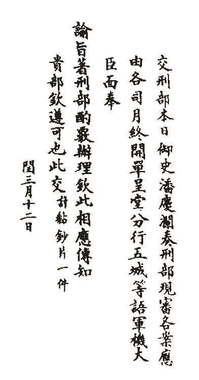 交刑部本日御史潘慶瀾奏刑部現審各案應
由各司月終開單呈堂分行五城等語軍機大
臣面奉
諭旨著刑部酌覈辦理欽此相應傳知
貴部欽遵可也此交計黏鈔片一件
閏三月十二日